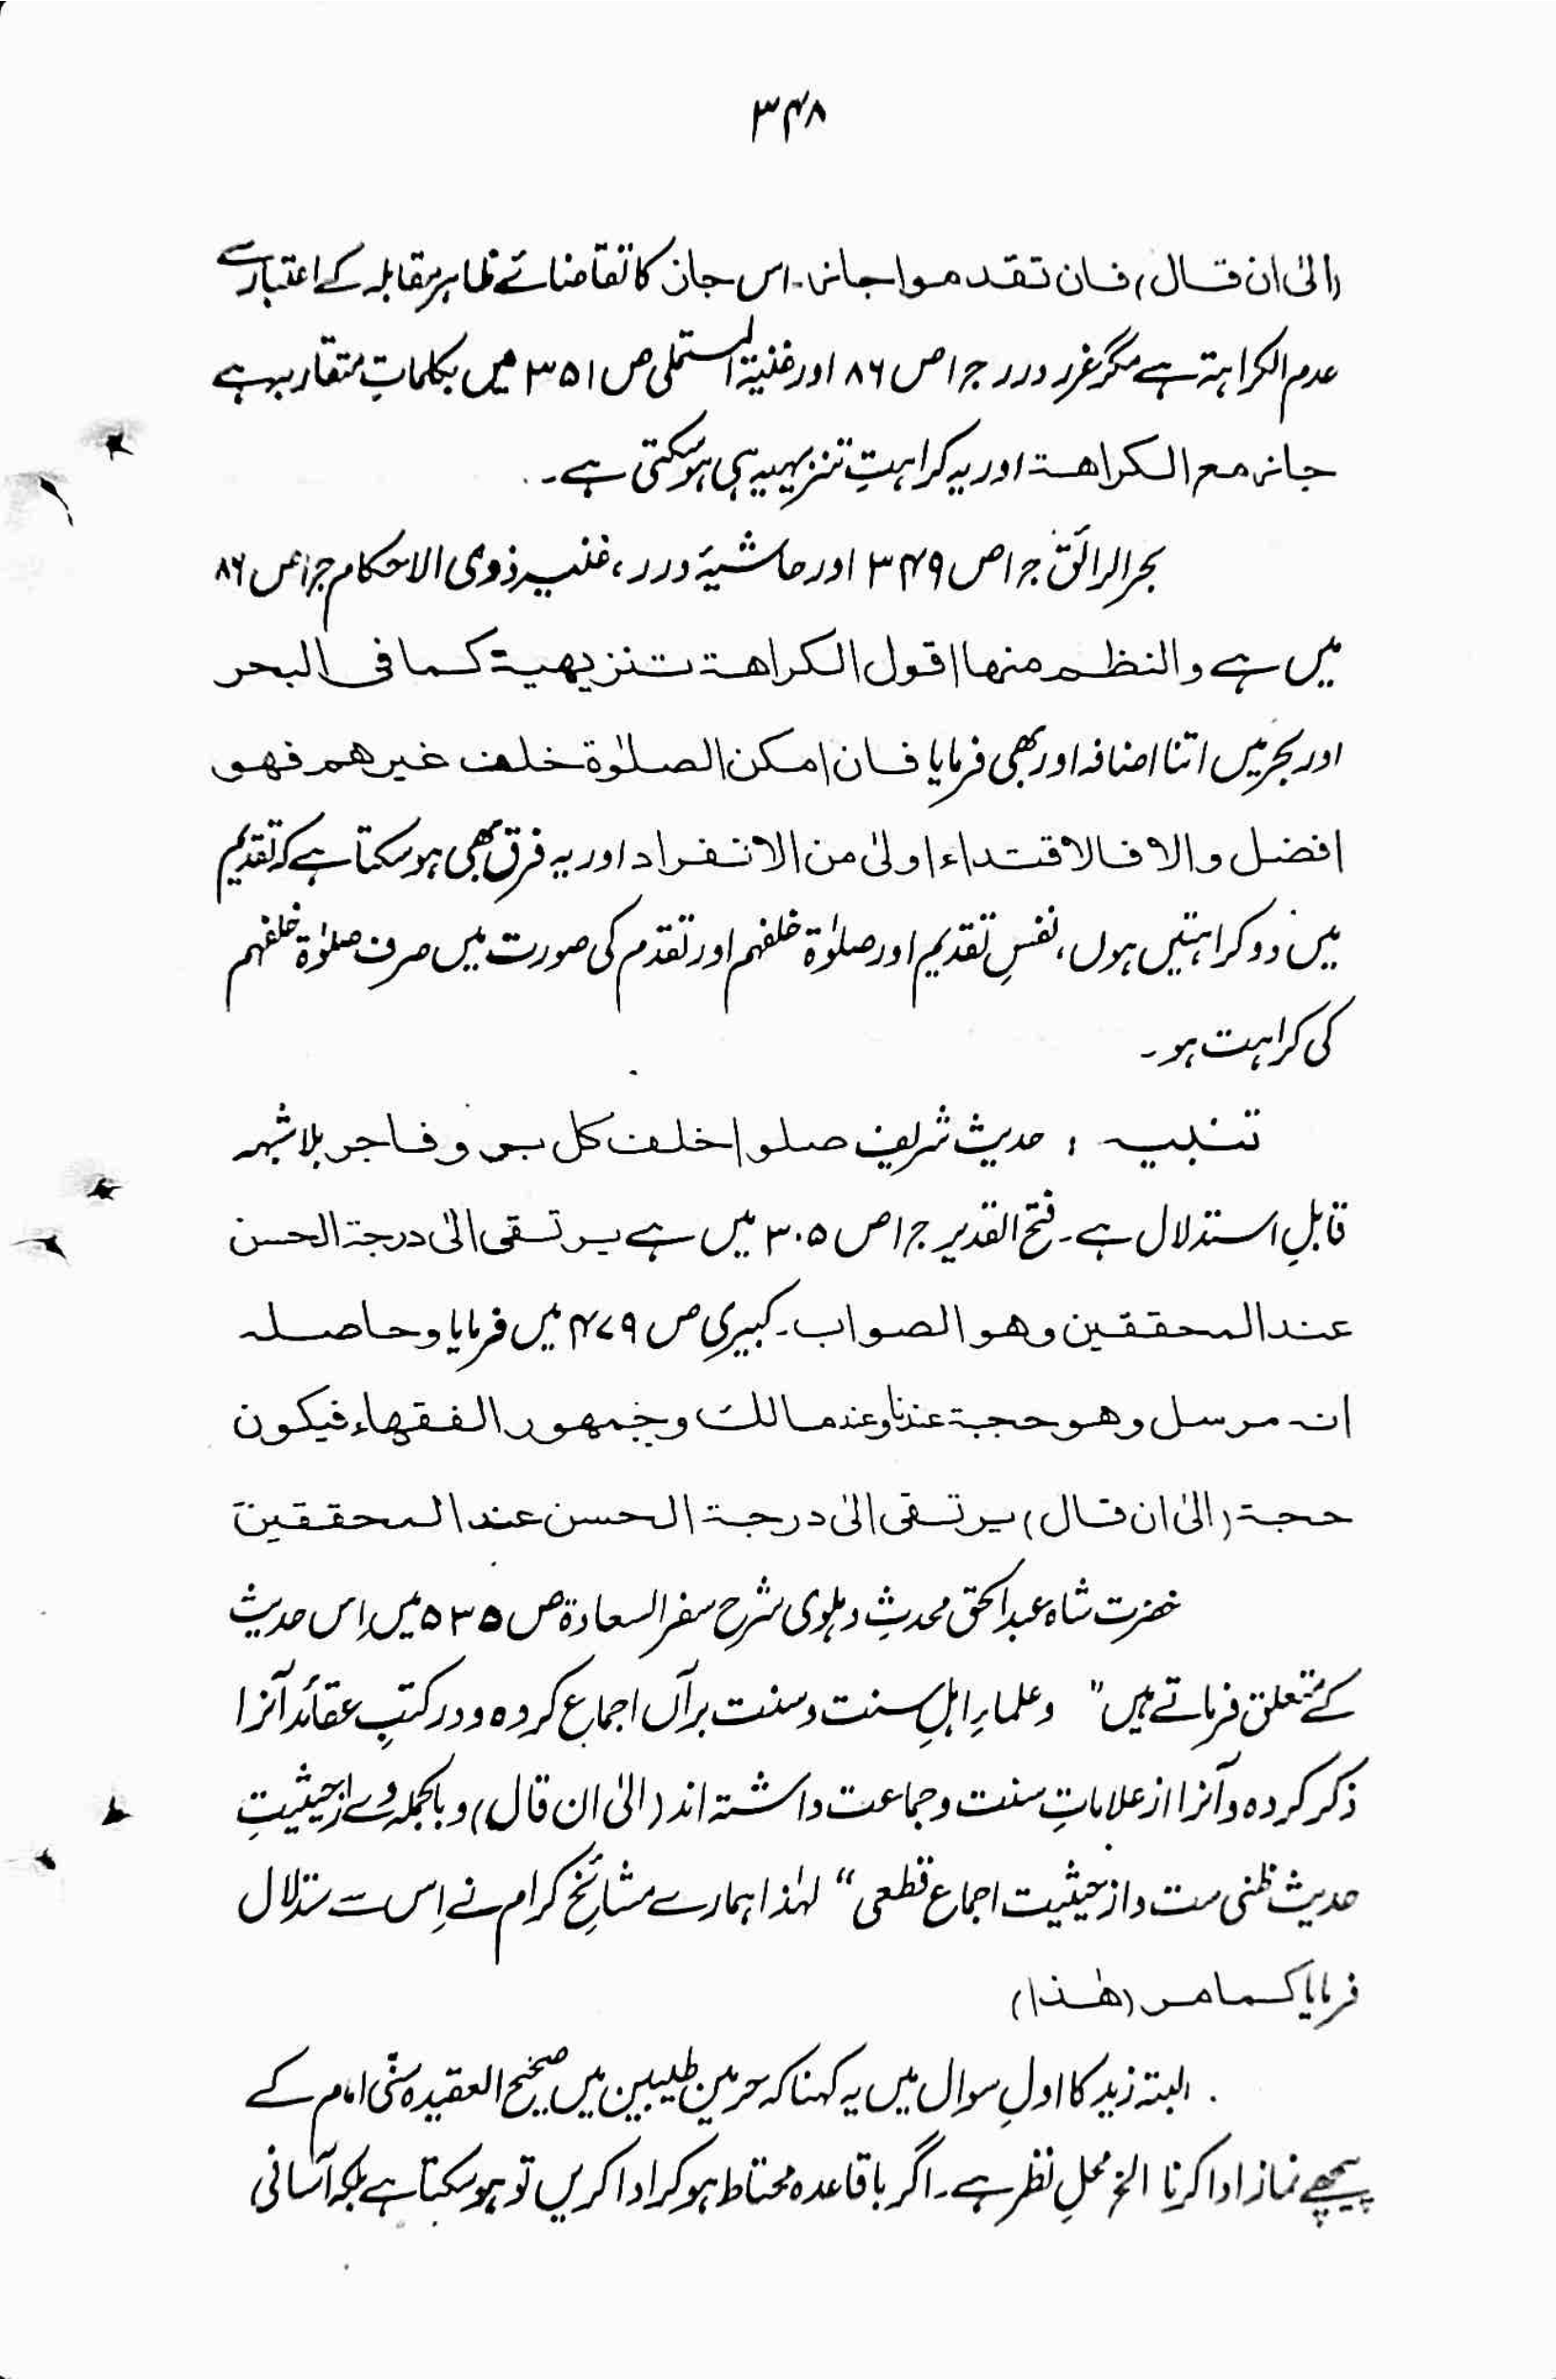 ۳۴۸
(الیٰ ان قال) فان تقدموا جاز۔ اس جاز کا تقاضائے ظاہر مقابلہ کے اعتبار سے
عدم الکراہتہ ہے مگر غرر درر جر۱ ص ۸۶ اور غنیۃ المستملی ص ۳۵۱ میں بکلماتِ متقاربہ ہے
جاز مع الکراھۃ اور یہ کراہتِ تنزیہیہ ہی ہو سکتی ہے۔
بحر الرائق جر۱ ص ۳۴۹ اور حاشیۂ درر، غنیہ ذوی الاحکام جر۱ ص ۸۶
میں ہے والنظم منہا اقول الکراھۃ تنزیھیۃ کما فی البحر
اور بحر میں اتنا اضافہ اور بھی فرمایا فان امکن الصلوٰۃ خلف غیرھم فھو
افضل والا فالاقتداء اولیٰ من الانفراد اور یہ فرق بھی ہو سکتا ہے کہ تقدیم
میں دو کراہتیں ہوں، نفسِ تقدیم اور صلوٰۃ خلفہم اور تقدم کی صورت میں صرف صلوٰۃ خلفہم
کی کراہت ہو۔
تنبیہ : حدیث شریف صلوا خلف کل بر و فاجر بلا شبہہ
قابلِ استدلال ہے۔ فتح القدیر جر۱ ص ۳۰۵ میں ہے یرتقی الیٰ درجۃ الحسن
عند المحققین وھو الصواب۔ کبیری ص ۴۷۹ میں فرمایا وحاصلہ
انہ مرسل وھو حجۃ عندنا وعند مالک وجمھور الفقھاء فیکون
حجۃ (الیٰ ان قال) یرتقی الیٰ درجۃ الحسن عند المحققین
حضرت شاہ عبد الحق محدثِ دہلوی شرح سفر السعادۃ ص ۵۳۵ میں اِس حدیث
کے متعلق فرماتے ہیں " وعلماءِ اہلِ سنت و سنت برآں اجماع کردہ و در کتبِ عقائد آنرا
ذکر کردہ و آنرا از علاماتِ سنت و جماعت داشتہ اند (الیٰ ان قال) و بالجملہ وے از حیثیتِ
حدیث ظنی ست و از حیثیت اجماع قطعی “ لہٰذا ہمارے مشائخِ کرام نے اِس سے ستدلال
فرمایا کما مر (ھٰذا)
البتہ زید کا اولِ سوال میں یہ کہنا کہ حرمین طیبین میں صحیح العقیدہ سنّی امام کے
پیچھے نماز ادا کرنا الخ محلِ نظر ہے۔ اگر باقاعدہ محتاط ہو کر ادا کریں تو ہو سکتا ہے بلکہ آسانی